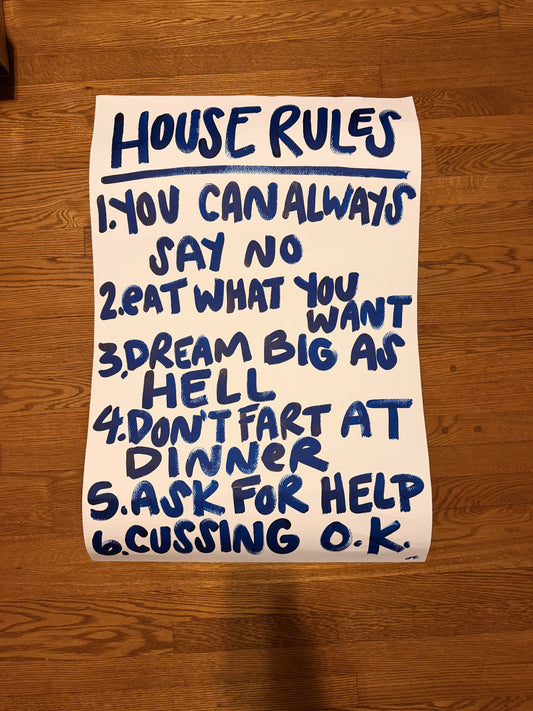 HOUSE RULES
1. YOU CAN ALWAYS
SAY NO
2. eAT WHAT YOU
WANT
3. DREAM BIG AS
HELL
4. DON'T FART AT
DINNER
5. ASK FOR HELP
6. CUSSING O.K.